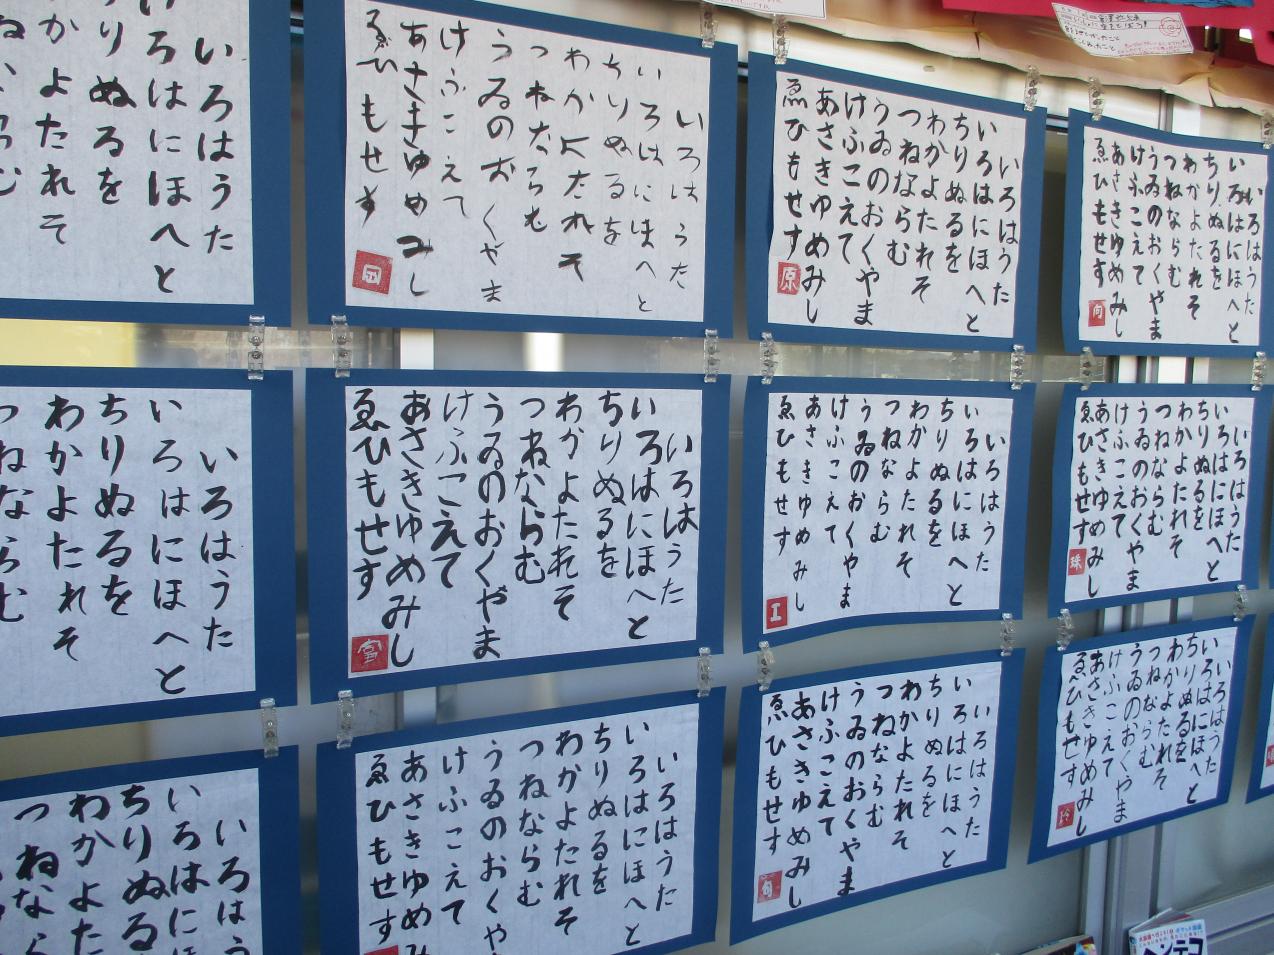 いろはうた
ろはにほへと
りぬるを
かよたれそ
いろはうた
いろはにほへと
ちりぬるを
わかよたれそ
つねならむ
うゐのおくやま
けふこえて
あさきゆめみし
ゑひもせす
いろはうた
いろはにほへと
ちりぬるを
わかよたれそ
つねならむ
うゐのおくやま
けふこえて
あさきゆめみし
ゑひもせす
原
いろはうた
いろはにほへと
ちりぬるを
わかよたれそ
つねならむ
うゐのおくやま
けふこえて
あさきゆめみし
ゑひもせす
向
いろはうた
いろはにほへと
ちりぬるを
わかよたれそ
つねならむ
いろはうた
いろはにほへと
ちりぬるを
わかよたれそ
つねならむ
うゐのおくやま
けふこえて
あさきゆめみし
ゑひもせす
いろはうた
いろはにほへと
ちりぬるを
わかよたれそ
つねならむ
うゐのおくやま
けふこえて
あさきゆめみし
ゑひもせす
工
いろはうた
いろはにほへと
ちりぬるを
わかよたれそ
つねならむ
うゐのおくやま
けふこえて
あさきゆめみし
ゑひもせす
珠
いろはう
いろはに
ちりぬる
わかよた
つねな
いろはうた
いろはにほへと
ちりぬるを
わかよたれそ
つねならむ
うゐのおくや
けふこえて
あさきゆめみ
ゑひもせす
いろはうた
いろはにほへと
ちりぬるを
わかよたれそ
つねならむ
うゐのおくやま
けふこえて
あさきゆめみし
ゑひもせす
旬
いろはうた
いろはにほへと
ちりぬるを
わかよたれそ
つねならむ
うゐのおくやま
けふこえて
あさきゆめみし
ゑひもせす
ヘンテコ